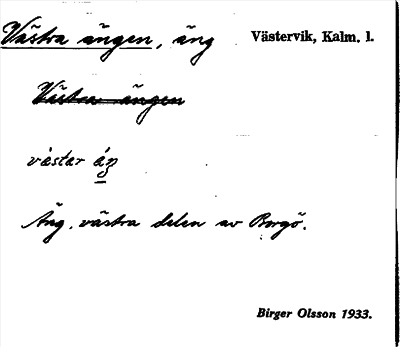 Västra ängen, äng Västervik, Kalm. l.
Västra ängen
västar
Äng, västra delen av Borgö.
Birger Olsson 1933.